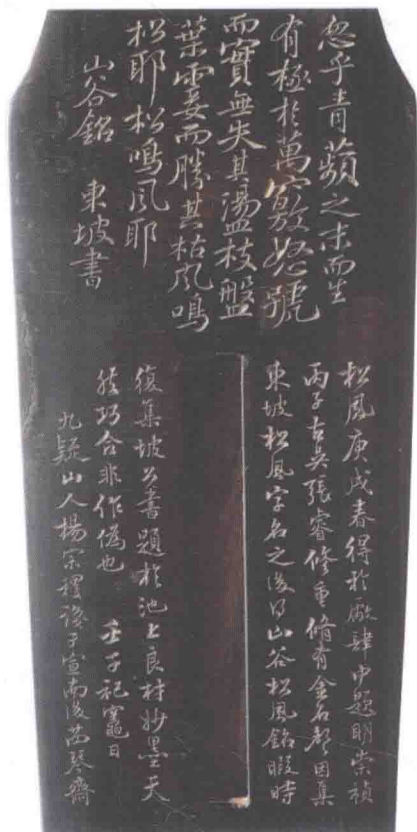 忽乎青蘋之末而生
有極於萬竅怒號
而實無失其盪枝盤
葉霎而勝其枯風鳴
松耶松鳴風耶
山谷銘 東坡書
松風庚戌春得於廠肆中題明崇禎
丙子古吳張睿修重脩有金石聲因集
東坡松風字名之後得山谷松風銘暇時
復集坡公書題於池上良材妙墨天
然巧合非作偽也 壬子祀竈日
九疑山人楊宗稷識于宣南琴齋